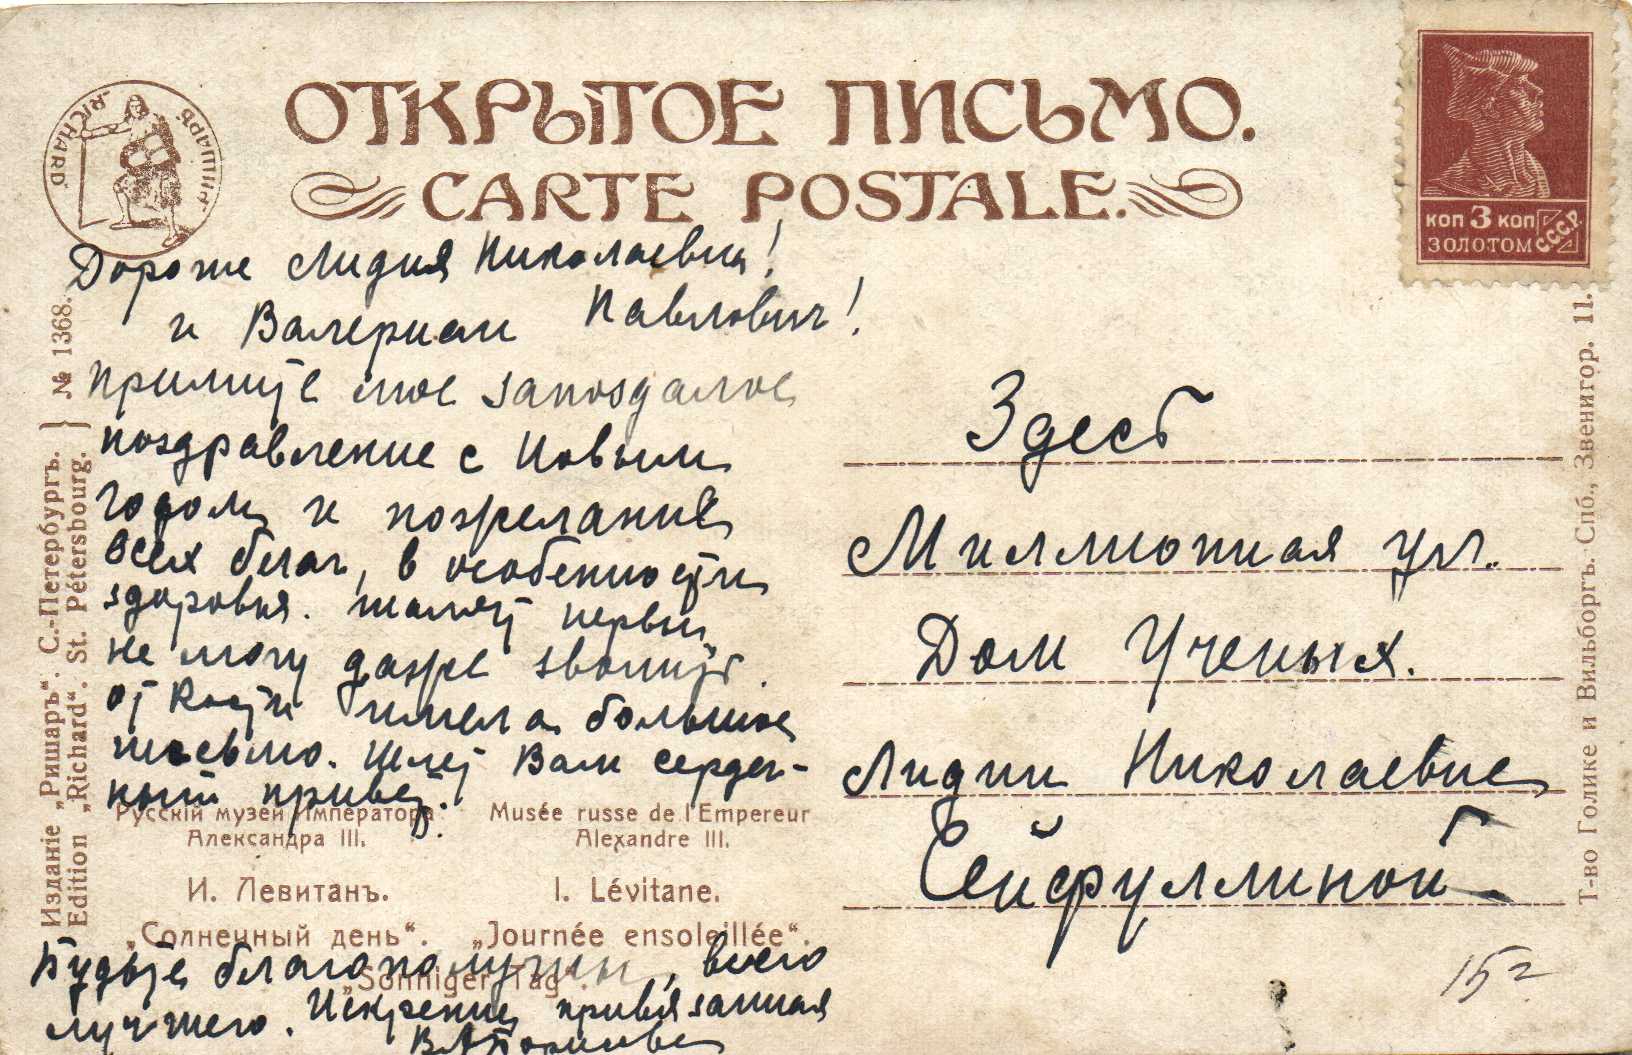 ОТКРЫТОЕ ПИСЬМО.
CARTE POSTALE.
„RICHARD“ „РИШАРЪ“
КОП 3 КОП
ЗОЛОТОМ С.С.С.Р.
Дорогие Лидия Николаевна!
и Валериан Павлович!
Примите мое запоздалое
поздравление с Новым
годом и пожелания
всех благ, в особенности
здоровья.
не могу даже звонить.
от Кости имела большое
письмо. Шлет Вам сердеч-
ный привет.
Здесь
Миллионная ул.
Дом Ученых.
Лидии Николаевне
Сейфуллиной
Русскій музей Императора
Александра III.
Musée russe de l'Empereur
Alexandre III.
И. Левитанъ.
I. Lévitane.
„Солнечный день“.
„Journée ensoleillée“.
„Sonniger Tag“.
Будьте благополучны, всего
лучшего. Искренне привязанная
Изданіе „Ришаръ“. С.-Петербургъ.
Edition „Richard“. St. Pétersbourg.
№ 1368.
Т-во Голике и Вильборгъ. Спб., Звенигор. 11.
15